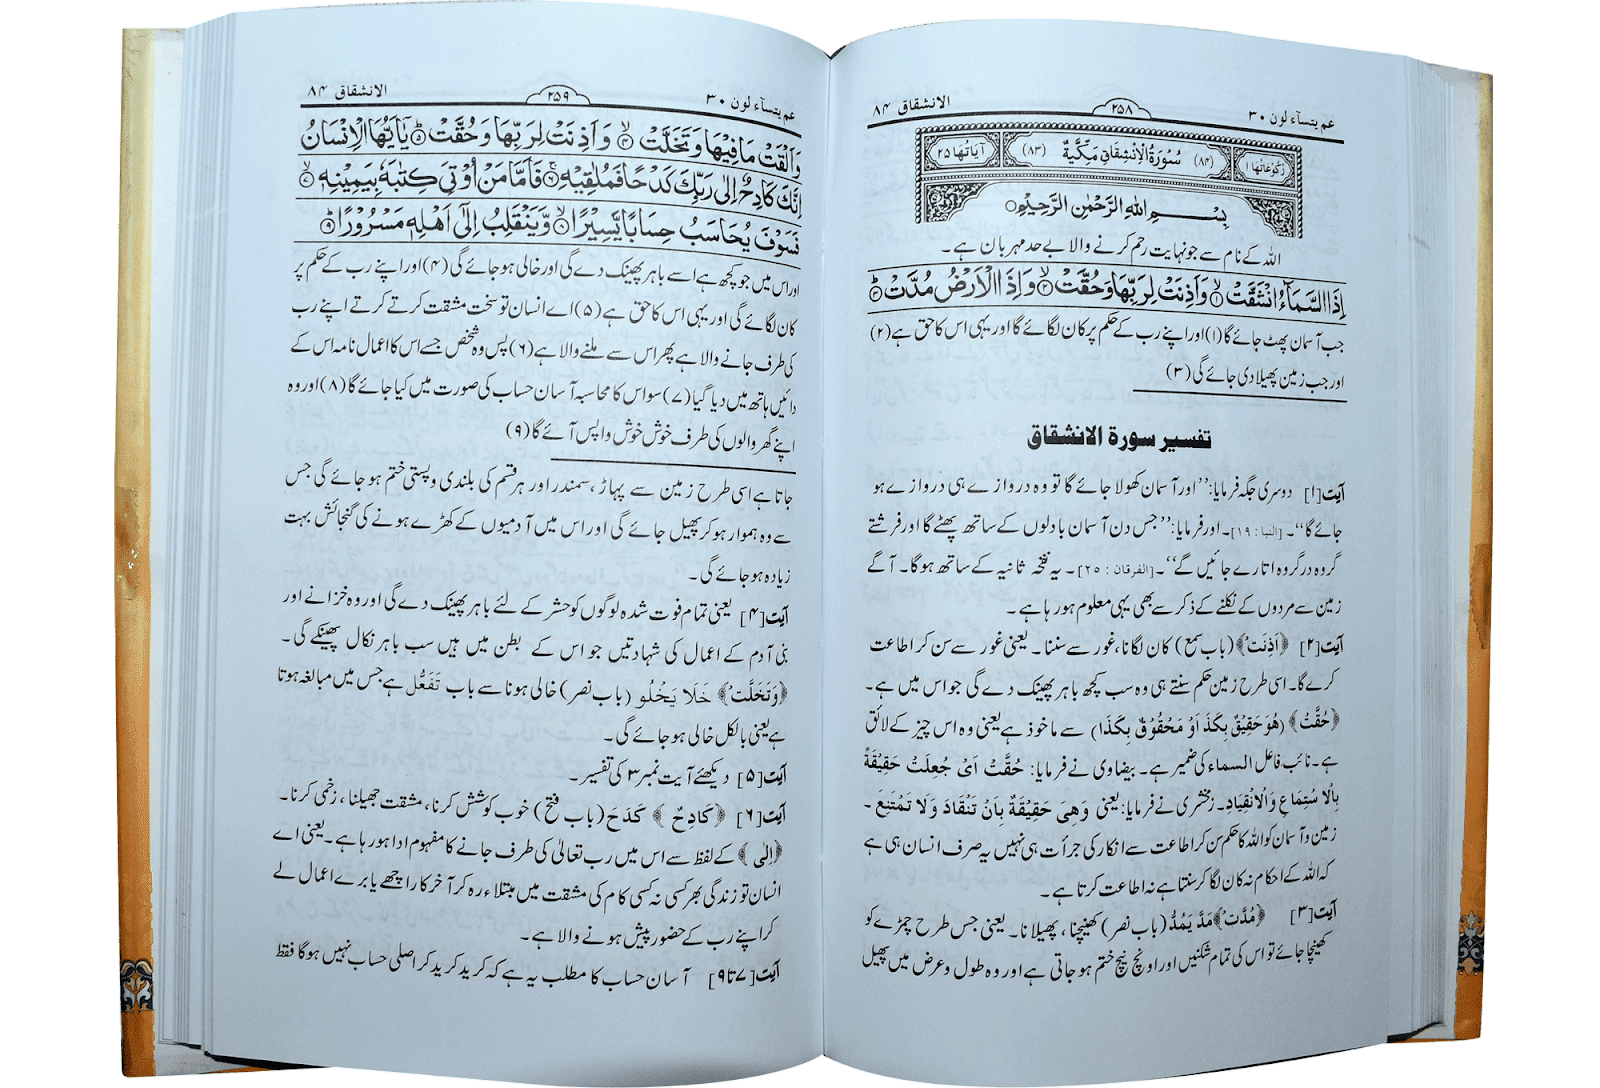 عم يتسآءلون ۳۰
۲۵۸
الانشقاق ۸۴
رکوعاتها ۱
(۸۴) سُوْرَةُ الْاِنْشِقَاقِ مَكِّيَّةٌ (۸۳)
اٰيَاتُهَا ۲۵
بِسْمِ اللهِ الرَّحْمٰنِ الرَّحِيْمِ
اللہ کے نام سے جو نہایت رحم کرنے والا بے حد مہربان ہے۔
اِذَا السَّمَآءُ انْشَقَّتْ ۱ وَاَذِنَتْ لِرَبِّهَا وَحُقَّتْ ۲ وَاِذَا الْاَرْضُ مُدَّتْ ۳
جب آسمان پھٹ جائے گا (۱) اور اپنے رب کے حکم پر کان لگائے گا اور یہی اس کا حق ہے (۲)
اور جب زمین پھیلا دی جائے گی (۳)
تفسیر سورة الانشقاق
آیت[۱] دوسری جگہ فرمایا: ’’اور آسمان کھولا جائے گا تو وہ دروازے ہی دروازے ہو
جائے گا‘‘۔ [النبا: ۱۹]۔ اور فرمایا: ’’جس دن آسمان بادلوں کے ساتھ پھٹے گا اور فرشتے
گروہ در گروہ اتارے جائیں گے‘‘۔ [الفرقان: ۲۵]۔ یہ نفخہ ثانیہ کے ساتھ ہوگا۔ آگے
زمین سے مردوں کے نکلنے کے ذکر سے بھی یہی معلوم ہو رہا ہے۔
آیت[۲] ﴿اَذِنَتْ﴾ (باب سمع) کان لگانا، غور سے سننا۔ یعنی غور سے سن کر اطاعت
کرے گا۔ اسی طرح زمین حکم سنتے ہی وہ سب کچھ باہر پھینک دے گی جو اس میں ہے۔
﴿حُقَّتْ﴾ (هُوَ حَقِيْقٌ بِكَذَا اَوْ مَحْقُوْقٌ بِكَذَا) سے ماخوذ ہے یعنی وہ اس چیز کے لائق
ہے۔ نائب فاعل السماء کی ضمیر ہے۔ بیضاوی نے فرمایا: حُقَّتْ اَیْ جُعِلَتْ حَقِيْقَةً
بِالْاسْتِمَاعِ وَالْاِنْقِيَادِ۔ زمخشری نے فرمایا: یعنی وَهِيَ حَقِيْقَةٌ بِاَنْ تَنْقَادَ وَلَا تَمْتَنِعَ۔
زمین و آسمان کو اللہ کا حکم سن کر اطاعت سے انکار کی جرأت ہی نہیں یہ صرف انسان ہی ہے
کہ اللہ کے احکام نہ کان لگا کر سنتا ہے نہ اطاعت کرتا ہے۔
آیت[۳] ﴿مُدَّتْ﴾ مَدَّ يَمُدُّ (باب نصر) کھینچنا، پھیلانا۔ یعنی جس طرح چمڑے کو
کھینچا جائے تو اس کی تمام شکنیں اور اونچ نیچ ختم ہو جاتی ہے اور وہ طول و عرض میں پھیل
عم يتسآءلون ۳۰
۲۵۹
الانشقاق ۸۴
وَاَلْقَتْ مَا فِيْهَا وَتَخَلَّتْ ۴ وَاَذِنَتْ لِرَبِّهَا وَحُقَّتْ ۵ يٰۤاَيُّهَا الْاِنْسَانُ
اِنَّكَ كَادِحٌ اِلٰى رَبِّكَ كَدْحًا فَمُلٰقِيْهِ ۶ فَاَمَّا مَنْ اُوْتِيَ كِتٰبَهٗ بِيَمِيْنِهٖ ۷
فَسَوْفَ يُحَاسَبُ حِسَابًا يَّسِيْرًا ۸ وَّيَنْقَلِبُ اِلٰۤى اَهْلِهٖ مَسْرُوْرًا ۹
اور اس میں جو کچھ ہے اسے باہر پھینک دے گی اور خالی ہو جائے گی (۴) اور اپنے رب کے حکم پر
کان لگائے گی اور یہی اس کا حق ہے (۵) اے انسان تو سخت مشقت کرتے کرتے اپنے رب
کی طرف جانے والا ہے پھر اس سے ملنے والا ہے (۶) پس وہ شخص جسے اس کا اعمال نامہ اس کے
دائیں ہاتھ میں دیا گیا (۷) سو اس کا محاسبہ آسان حساب کی صورت میں کیا جائے گا (۸) اور وہ
اپنے گھر والوں کی طرف خوش خوش واپس آئے گا (۹)
جاتا ہے اسی طرح زمین سے پہاڑ، سمندر اور ہر قسم کی بلندی و پستی ختم ہو جائے گی جس
سے وہ ہموار ہو کر پھیل جائے گی اور اس میں آدمیوں کے کھڑے ہونے کی گنجائش بہت
زیادہ ہو جائے گی۔
آیت[۴] یعنی تمام فوت شدہ لوگوں کو حشر کے لئے باہر پھینک دے گی اور وہ خزانے اور
بنی آدم کے اعمال کی شہادتیں جو اس کے بطن میں ہیں سب باہر نکال پھینکے گی۔
﴿وَتَخَلَّتْ﴾ خَلَا يَخْلُو (باب نصر) خالی ہونا سے باب تَفَعُّل ہے جس میں مبالغہ ہوتا
ہے یعنی بالکل خالی ہو جائے گی۔
آیت[۵] دیکھئے آیت نمبر ۳ کی تفسیر۔
آیت[۶] ﴿كَادِحٌ﴾ كَدَحَ (باب فتح) خوب کوشش کرنا، مشقت جھیلنا، زخمی کرنا۔
﴿اِلٰى﴾ کے لفظ سے اس میں رب تعالیٰ کی طرف جانے کا مفہوم ادا ہو رہا ہے۔ یعنی اے
انسان تو زندگی بھر کسی نہ کسی کام کی مشقت میں مبتلاء رہ کر آخر کار اچھے یا برے اعمال لے
کر اپنے رب کے حضور پیش ہونے والا ہے۔
آیت[۷ تا ۹] آسان حساب کا مطلب یہ ہے کہ کرید کرید کر اصلی حساب نہیں ہوگا فقط